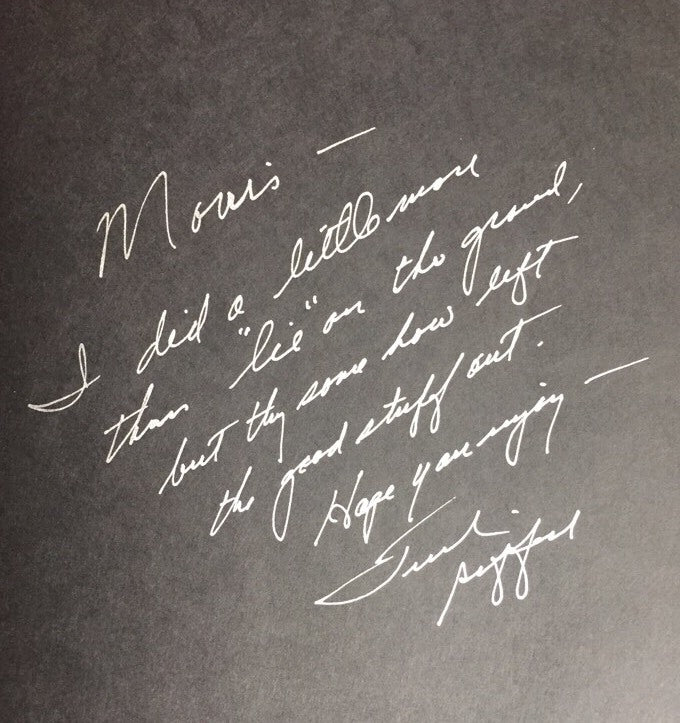 Morris —
I did a little more
than "lie" on the ground,
but they some how left
the good stuff out.
Hope you enjoy —